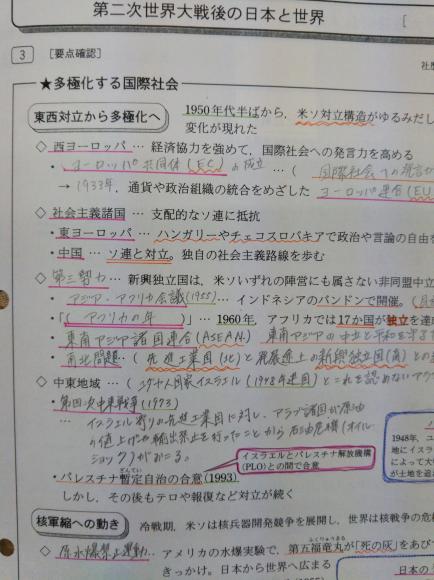 第二次世界大戦後の日本と世界 [
3 [要点確認] 社
★多極化する国際社会
東西対立から多極化へ 1950年代半ばから，米ソ対立構造がゆるみだし
変化が現れた
◇西ヨーロッパ… 経済協力を強めて，国際社会への発言力を高める
・ヨーロッパ共同体（EC）の成立 …（ 国際社会への発言力
→1933年，通貨や政治組織の統合をめざした ヨーロッパ連合（EU
◇社会主義諸国… 支配的なソ連に抵抗
・東ヨーロッパ… ハンガリーやチェコスロバキアで政治や言論の自由を
・中国… ソ連と対立。独自の社会主義路線を歩む
◇第三勢力… 新興独立国は，米ソいずれの陣営にも属さない非同盟中立
・アジア・アフリカ会議（1955）… インドネシアのバンドンで開催。
・「（ アフリカの年 ）」… 1960年，アフリカでは17か国が独立を達
・東南アジア諸国連合（ASEAN） 東南アジアの中立と平和を守る
・南北問題…（ 先進工業国（北）と発展途上の新興独立国（南）との
◇中東地域…（ユダヤ人国家イスラエル（1948年建国）とこれを認めないアラ
・第四次中東戦争（1973）
… イスラエル寄りの先進工業国に対し、アラブ諸国が原油
の値上げや輸出禁止を行ったことから石油危機（オイル
ショック）がおこる。
イスラエルとパレスチナ解放機構
（PLO）との間で合意
ざんてい
・パレスチナ暫定自治の合意（1993）
しかし，その後もテロや報復など対立が続く
1948年，ユ
地にイスラ
によって大
が土地を追
核軍縮への動き 冷戦期，米ソは核兵器開発競争を展開し，世界は核戦争の危
ふくりゅうまる
◇原水爆禁止運動… アメリカの水爆実験で，第五福竜丸が「死の灰」をあび
きっかけ。日本から世界へ広まる
日本の